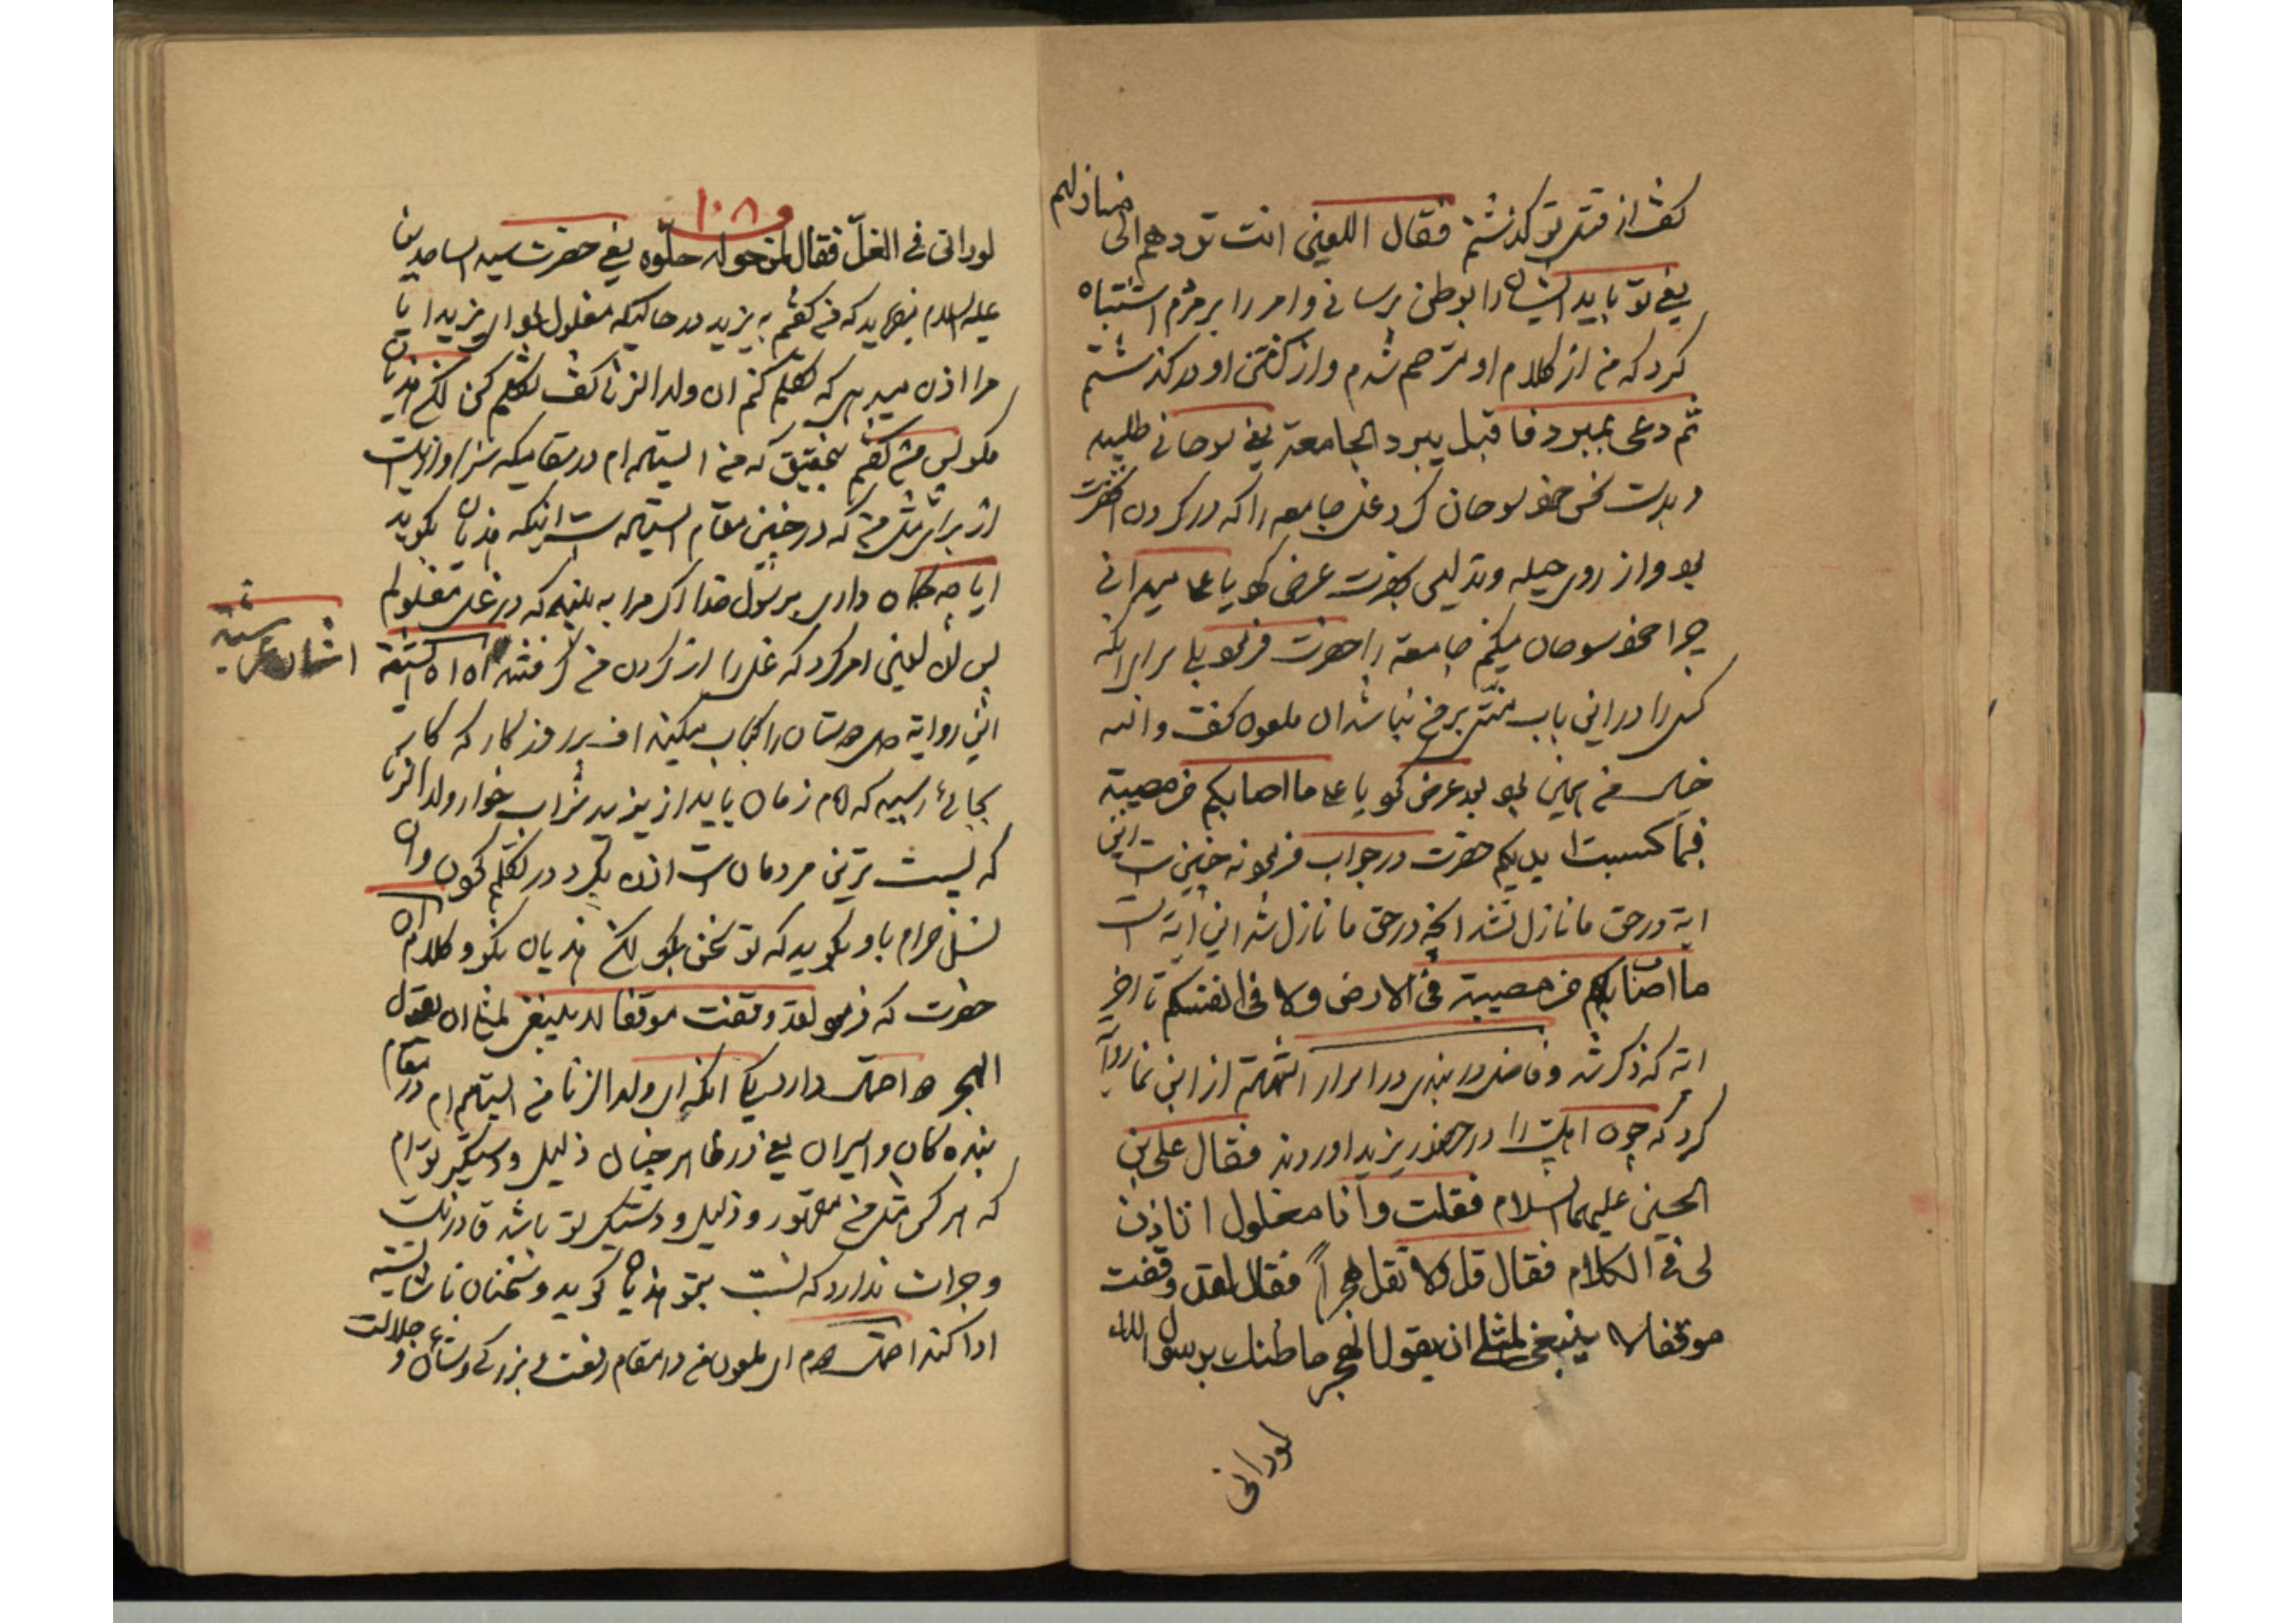 گفت از قتل تو گذشتم فقال اللعین انت تودهم الی منازلهم
یعنی تو باید ایشان را بوطن برسانی و امر را بر مردم اشتباه
کرد که من از کلام او مترحم شدم و از کشتن او در گذشتم
ثم دعی بمبرد فاقبل یبرد الجامعة یعنی سوهانی طلبید
و بدست نحس خود سوهان کرد غل جامعه را که در گردن آنحضرت
بود و از روی حیله و تدلیس بحضرت عرض کرد یا علی میدانی
چرا خود سوهان میکنم جامعة را حضرت فرمود بلی برای اینکه
کسی را در این باب منتی بر من نباشد ان ملعون گفت والله
خیال من همین بود بعد عرض کرد یا علی ما اصابکم من مصیبة
فبما کسبت ایدیکم حضرت در جواب فرمود نه چنین است این
ایه در حق ما نازل نشد آنچه در حق ما نازل شد این ایه است
ما اصابکم من مصیبة فی الارض ولا فی انفسکم تا اخر
ایه که ذکر شد و فاضل دربندی در اسرار الشهادة از ابن نما روایت
کرد که چون اهلبیت را در حضور یزید اوردند فقال علی بن
الحسین علیهما السلام فقلت وانا مغلول اتاذن
لی فی الکلام فقال قل ولا تقل هجراً فقال لقد وقفت
موقفا لا ینبغی لمثلی ان یقول الهجر ما ظنك برسول الله
لو رانی
۱۰۸
لو رانی فی الغلّ فقال لمن حوله حلّوه یعنی حضرت سید الساجدین
علیه السلام میفرماید که من گفتم به یزید در حالتیکه مغلول بودم ای یزید ایا
مرا اذن میدهی که تکلم کنم ان ولد الزنا گفت تکلم کن لکن هذیان
مگو پس من گفتم بتحقیق که من ایستاده ام در مقامیکه سزاوار نیست
از برای مثل من که در چنین مقام ایستاده است اینکه هذیان بگوید
ایا چه گمان داری برسول خدا اگر مرا به بیند که در غل مغلولم
پس ان لعین امر کرد که غل را از گردن من گرفتند اه اه
این روایة دل دوستان را کباب میکند اف بر روزگار که کار
بجائی رسید که امام زمان باید از یزید شراب خوار ولد الزنا
که پست ترین مردمان است اذن بگیرد در تکلم کردن و ان
نسل حرام باو بگوید که تو سخن بگو لکن هذیان نگو و کلام ان
حضرت که فرمود لقد وقفت موقفا لا ینبغی لمثلی ان یقول
الهجر دو احتمال دارد یکی انکه ای ولد الزنا من ایستاده ام در مقام
بنده گان و اسیران یعنی در ظاهر چنان ذلیل و دستگیر تو ام
که هر کس مثل من مقهور و ذلیل و دستگیر تو باشد قادر نیست
و جرات ندارد که نسبت بتو هذیان گوید و سخنان ناشایسته
ادا کند احتمال دوم ای ملعون من در مقام رفعت و بزرگی و شان و جلالت